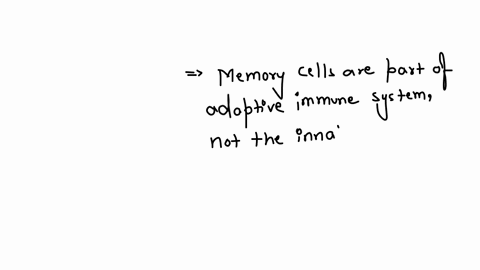 => Memory cells are part of
adoptive immune system,
not the inna